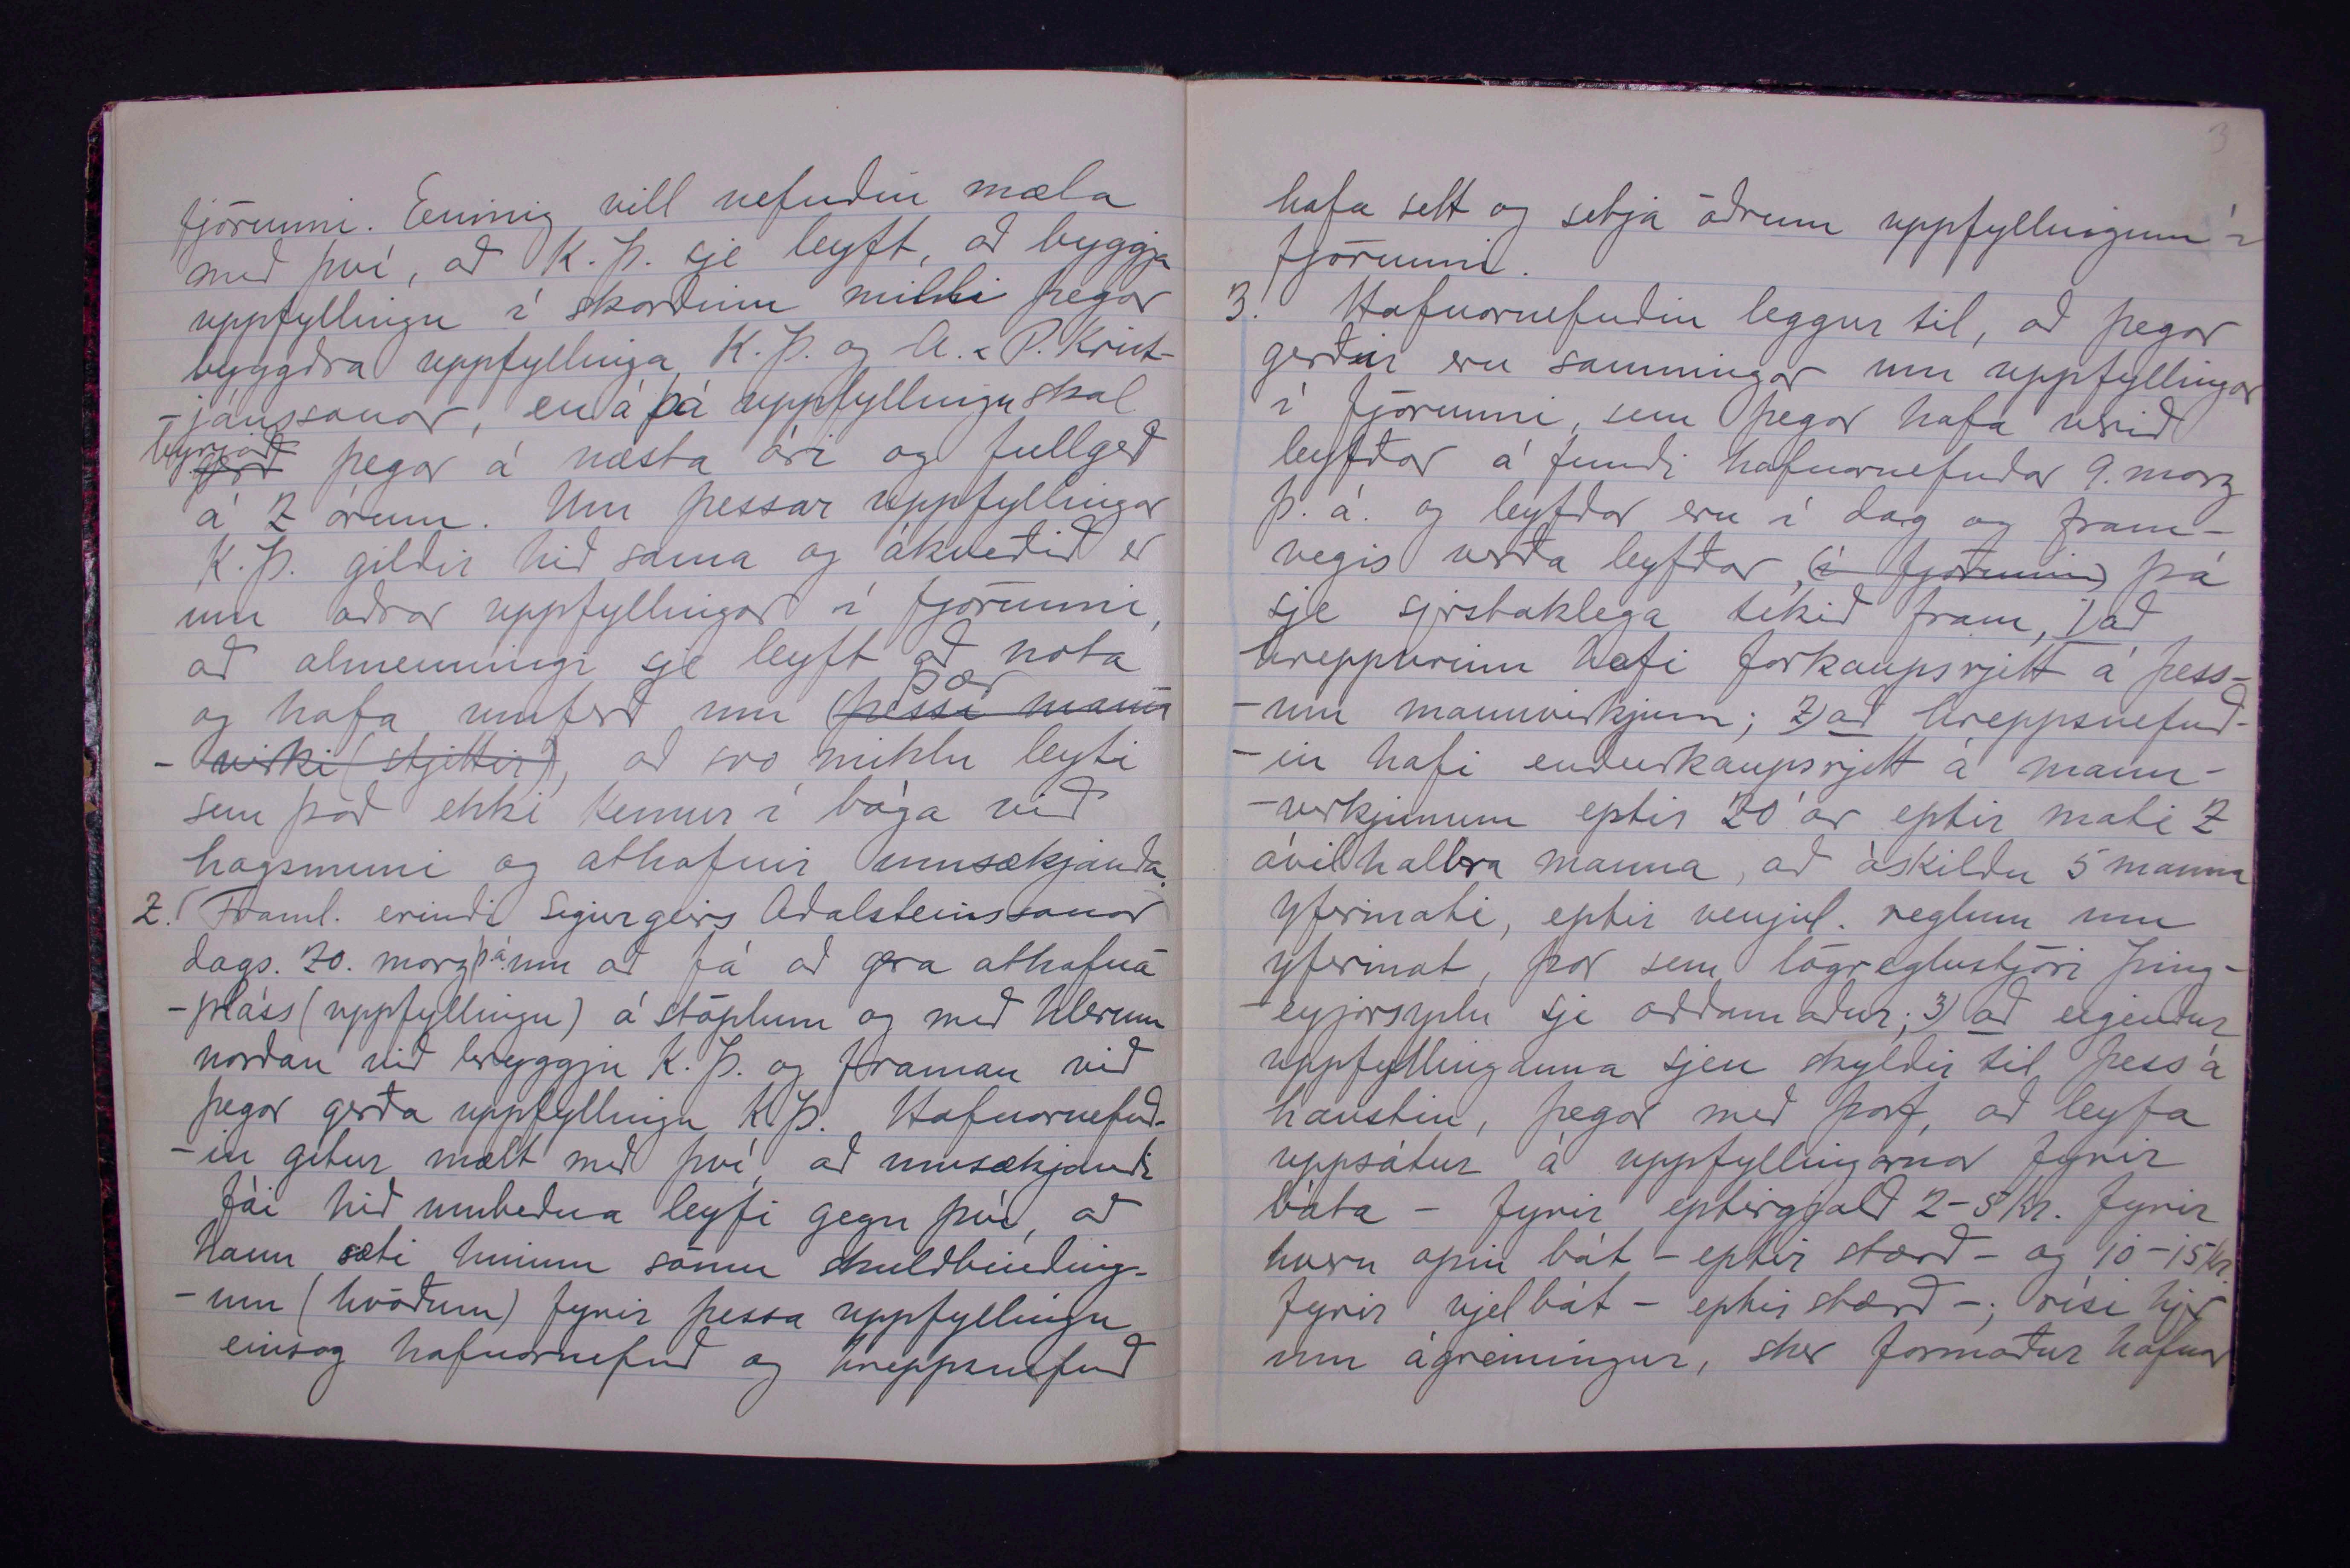 fjörunni. Einnig vill nefndin mæla
með því, að K.Þ. sje leyft, að byggja
uppfyllingu í skarðinu milli þegar
byggðra uppfyllinga K.Þ. og A. & P. Krist-
-jánssonar, en á þá uppfyllingu skal
byrjað
gerð þegar á næsta ári og fullgerð
á 2 árum. Um þessar uppfyllingar
K.Þ. gildir hið sama og ákveðið er
um aðrar uppfyllingar í fjörunni,
að almenningi sje leyft að nota
þær
og hafa umferð um (þessi mann
-virki (stjettir), að svo miklu leyti
sem það ekki kemur í bága við
hagsmuni og athafnir umsækjanda.
2. Framl. erindi Sigurgeirs Aðalsteinssonar
dags. 20. marz þ.á. um að fá að gera athafna
-pláss (uppfyllingu) á stöplum og með hlerum
norðan við bryggju K.Þ. og framan við
þegar gerða uppfyllingu K.Þ. Hafnarnefnd-
-in getur mælt með því, að umsækjandi
fái hið umbeðna leyfi gegn því, að
hann sæti hinum sömu skuldbinding-
-um (kvöðum) fyrir þessa uppfyllingu
einsog hafnarnefnd og hreppsnefnd
3
hafa sett og setja öðrum uppfyllingum í
fjörunni.
3. Hafnarnefndin leggur til, að þegar
gerðir eru samningar um uppfyllingar
í fjörunni, sem þegar hafa verið
leyfðar á fundi hafnarnefndar 9. marz
þ.á. og leyfðar eru í dag og fram-
vegis verða leyfðar, (í fjörunni) þá
sje sjerstaklega tekið fram, 1) að
hreppurinn hafi forkaupsrjett á þess-
-um mannvirkjum; 2) að hreppsnefnd-
-in hafi endurkaupsrjett á mann-
-virkjunum eptir 20 ár eptir mati 2
óvilhallra manna, að áskildu 5 manna
yfirmati, eptir venjul. reglum um
yfirmat, þar sem lögreglustjóri Þing-
-eyjarsýslu sje oddamaður; 3) að eigendur
uppfyllinganna sjeu skyldir til þess á
haustin, þegar með þarf, að leyfa
uppsátur á uppfyllingarnar fyrir
báta - fyrir eptirgjald 2-5 kr. fyrir
hvern opin bát - eptir stærð - og 10-15 kr.
fyrir vjelbát - eptir stærð -; rísi hjer
um ágreiningur, sker formaður hafnar